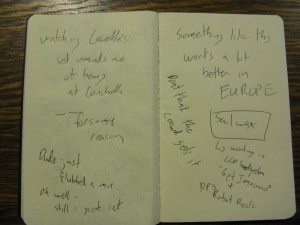 watching Lavelle's
set reminds me
of being
at Coachella
— for some
reason
Dude just
flubbed a mix
oh well -
still a great set
Something like this
works a bit
better in
EUROPE
Don't think the
crowd gets it
Soulwax
↳ working in
LCD Soundsystem
"Get Innocuous"
+
DP's Robot Rock